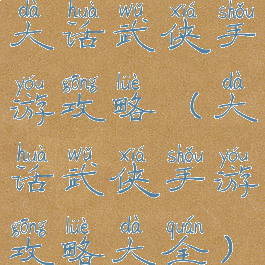 dà huà wǔ xiá shǒu
大话武侠手
yóu gōng lüè dà
游攻略（大
huà wǔ xiá shǒu yóu
话武侠手游
gōng lüè dà quán
攻略大全）